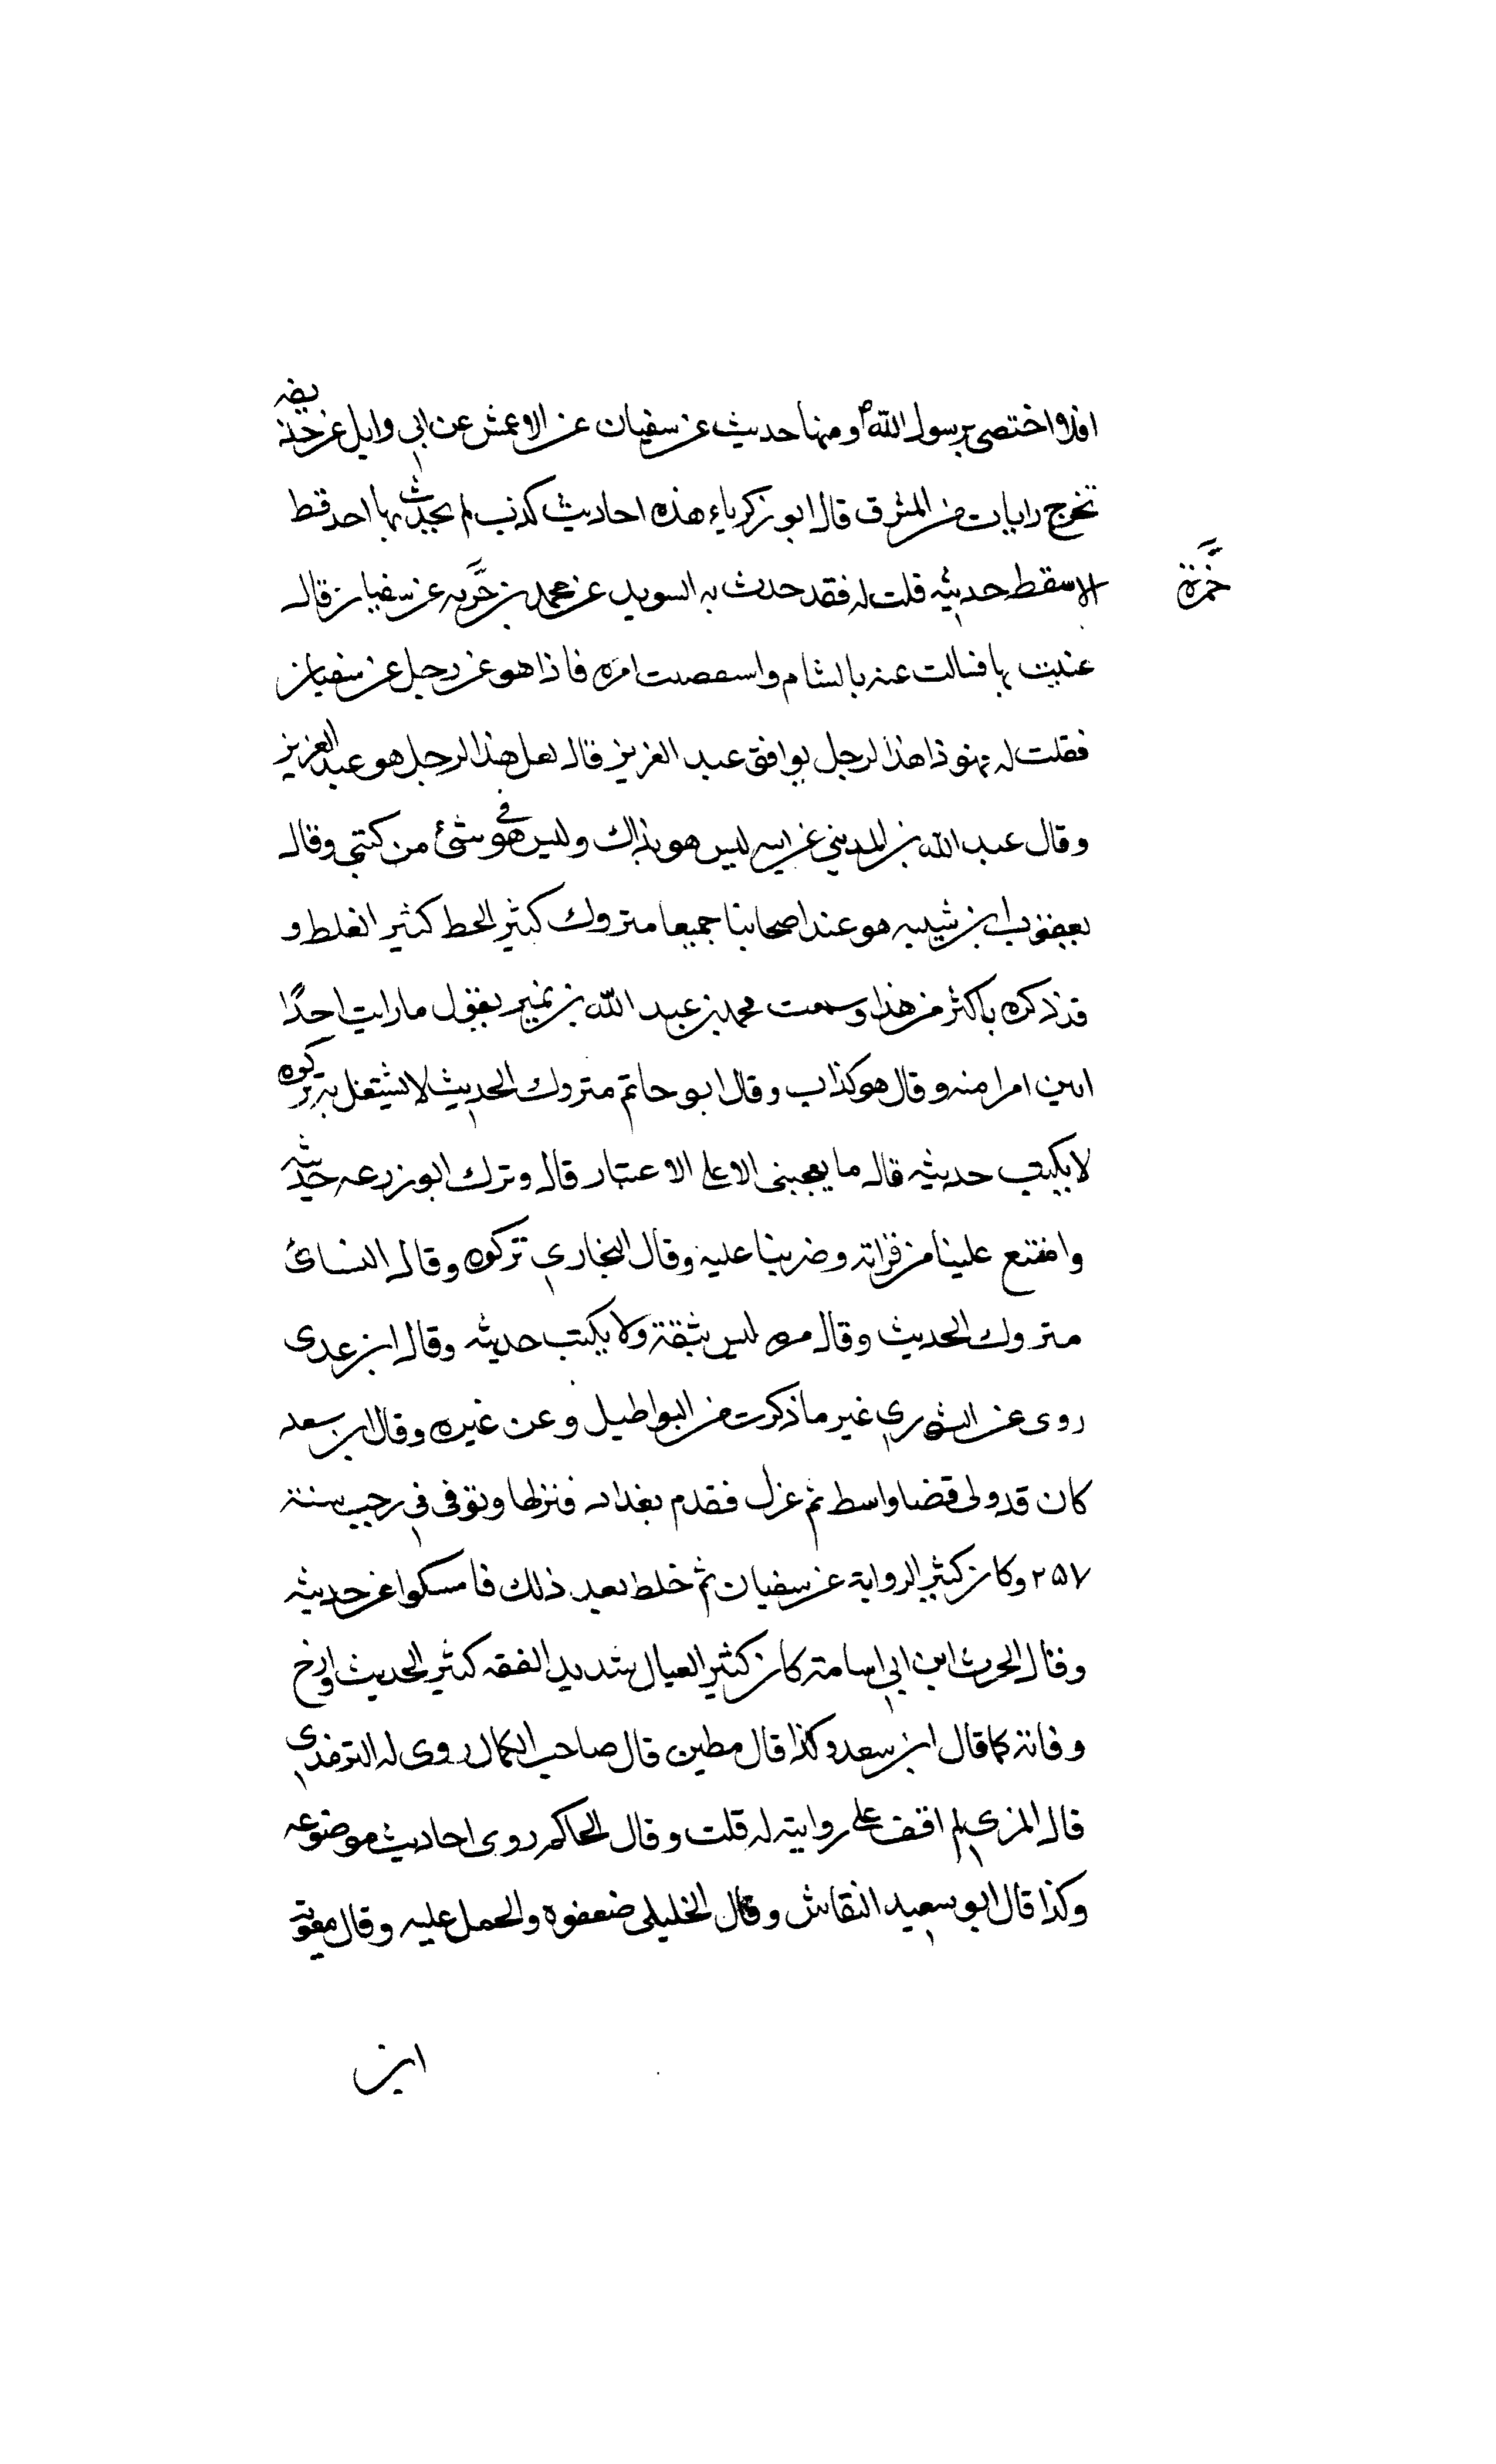 افذوا ختصى برسول اللهؐ ومنها حديث عن سفيان عن الاعمش عن ابي وايل عن حذيفه
تخرج رايات من المشرق قال ابو زكرياء هذه احاديث كذب لم يحدث بها احد قط
الا سقط حديثه قلت له فقد حدث به السويدي عن محمد بن حمزيه عن سفيان قال
خمرة
عنيت بها فسالت عنه بالشام واستقصيت امره فاذا هو عن رجل عن سفيان
فقلت له فهو ذا هذا الرجل يوافق عبد العزيز قال لعل هذا الرجل هو عبد العزيز
وقال عبد الله بن المديني عن ابيه ليس هو بذاك وليس هو في شئ من كتبي وقال
يعقوب ابن شيبه هو عند اصحابنا جميعا متروك كثير الخط كثير الغلط و
قد ذكره باكثر من هذا وسمعت محمد بن عبد الله بن نمير يقول ما رايت احدًا
ابين امرا منه وقال هو كذاب وقال ابو حاتم متروك الحديث لا يشتغل به تركوه
لا يكتب حديثه قال ما يعجبنى الا على الاعتبار قال وترك ابو زرعه حديثه
وامتنع علينا من قراته وضربنا عليه وقال البخاري تركوه وقال النسائ
متروك الحديث وقال مره ليس بثقة ولا يكتب حديثه وقال ابن عدى
روى عن الثوري غير ما ذكرت من البواطيل وعن غيره وقال ابن سعد
كان قد ولى قضا واسط ثم عزل فقدم بغداد فنزلها وتوفى في رجب سنة
٢٥٧ وكان كثير الرواية عن سفيان ثم خلط بعد ذلك فامسكوا عن حديثه
وقال الحرث ابن ابي اسامة كان كثير العيال شديد الفقه كثير الحديث وارخ
وفاته كما قال ابن سعد وكذا قال مطين قال صاحب الكمال روى له الترمذي
قال المزي لم اقف على روايته له قلت وقال الحاكم روى احاديث موضوعه
وكذا قال ابو سعيد النقاش وقال الخليلى ضعفوه والحمل عليه وقال معوية
ابن